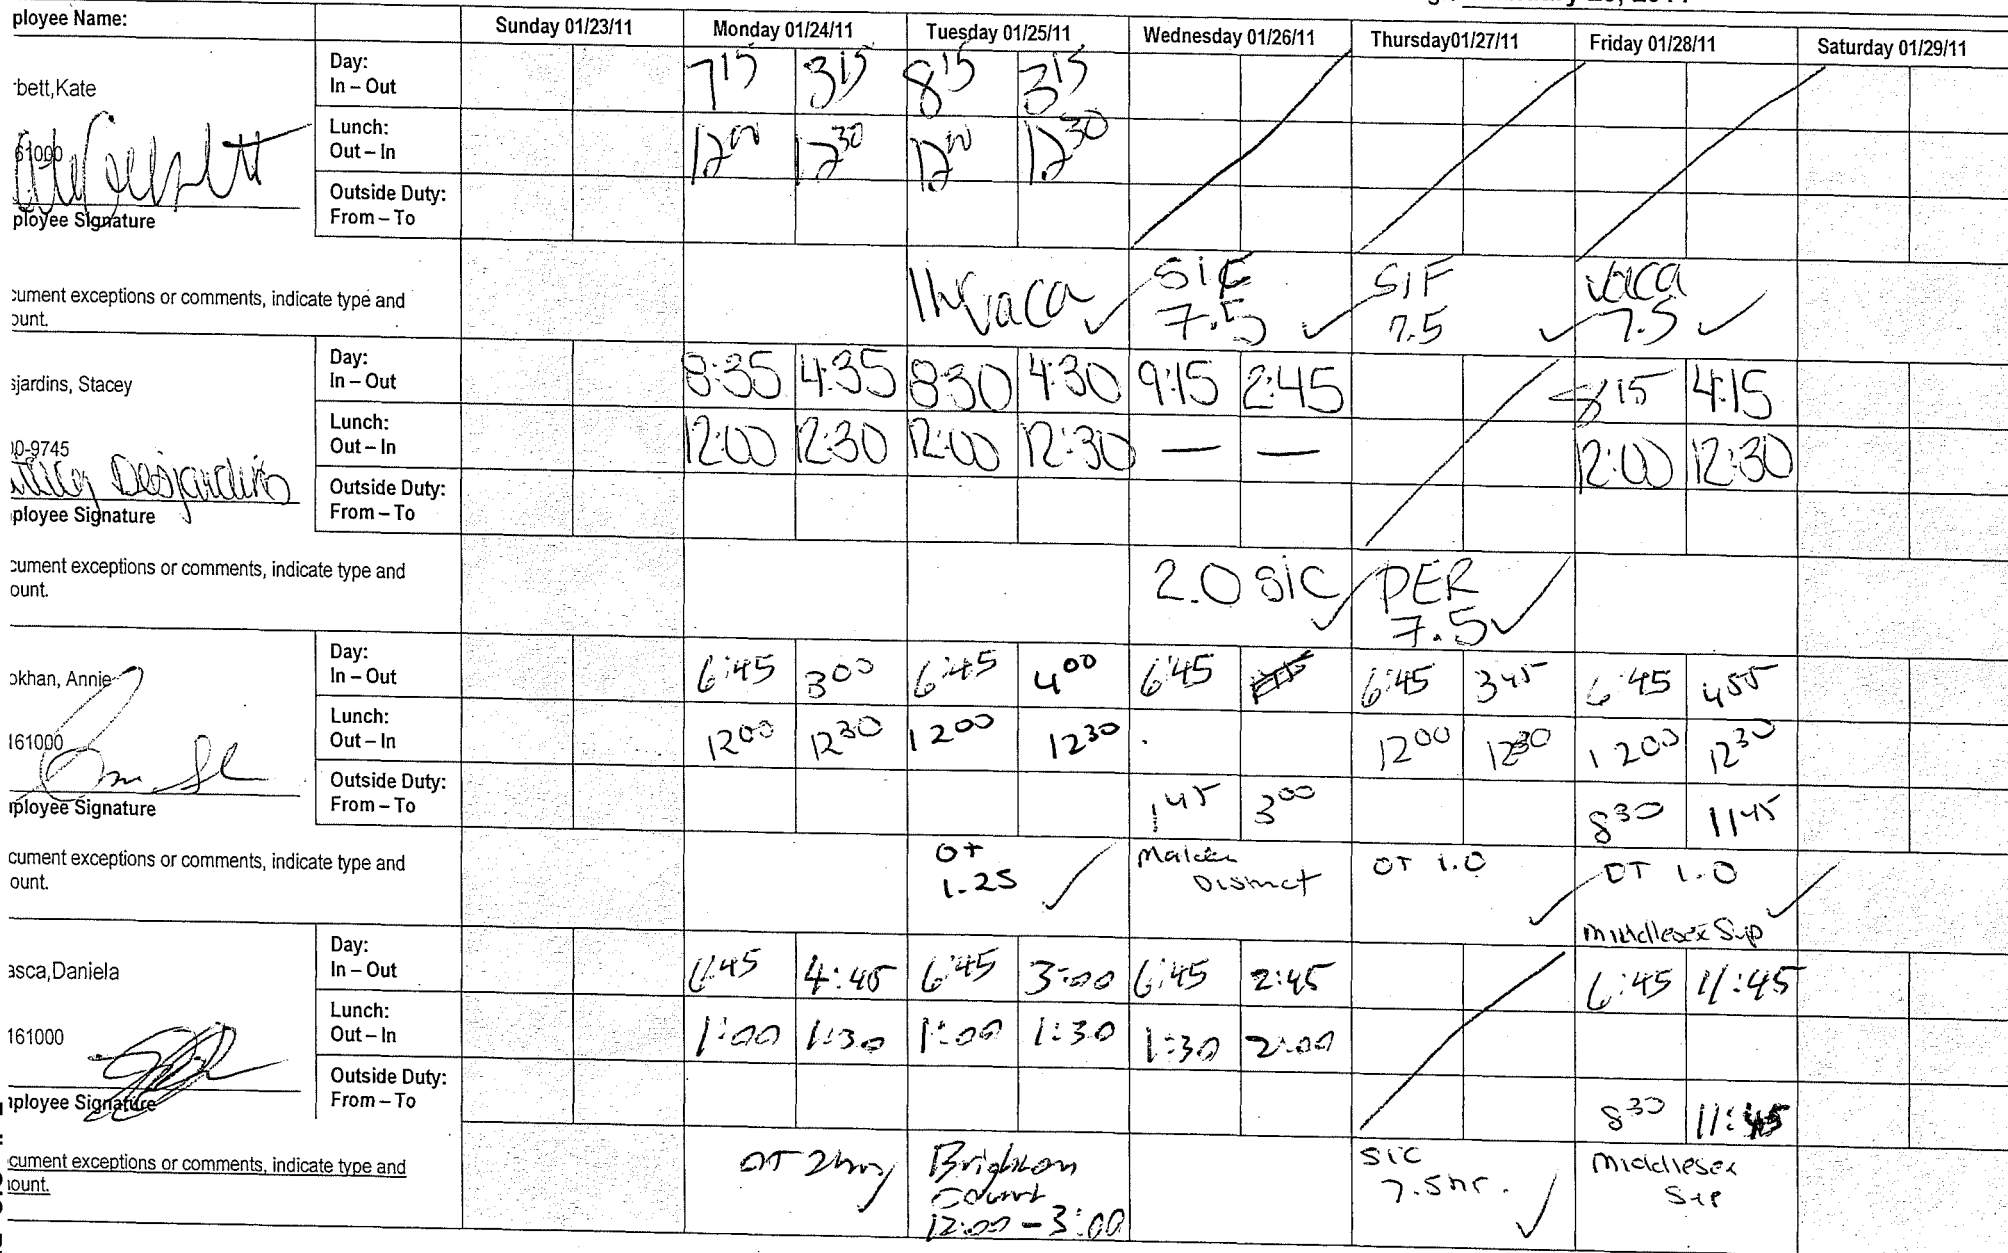 ployee Name: Sunday 01/23/11 Monday 01/24/11 Tuesday 01/25/11 Wednesday 01/26/11 Thursday01/27/11 Friday 01/28/11 Saturday 01/29/11
bett,Kate
61000
ployee Signature
Day:
In – Out 7 15 3 15 8 15 3 15
Lunch:
Out – In 12 00 12 30 12 00 12 30
Outside Duty:
From – To
cument exceptions or comments, indicate type and
ount.
1hr vaca SIF SIF vaca
7.5 7.5 7.5
sjardins, Stacey
0-9745
Desjardins
ployee Signature
Day:
In – Out 8:35 4:35 8:30 4:30 9:15 2:45 8 15 4:15
Lunch:
Out – In 12:00 12:30 12:00 12:30 — — 12:00 12:30
Outside Duty:
From – To
cument exceptions or comments, indicate type and
ount.
2.0 SIC PER
7.5
okhan, Annie
161000
ployee Signature
Day:
In – Out 6:45 3 00 6:45 4 00 6:45 6:45 3 45 6:45
Lunch:
Out – In 12 00 12 30 12 00 12 30 12 00 12 30 12 00 12 30
Outside Duty:
From – To 1 45 3 00 8 30 11 45
cument exceptions or comments, indicate type and
ount.
OT Malden OT 1.0 OT 1.0
1.25 District
Middlesex Sup
asca,Daniela
161000
ployee Signature
Day:
In – Out 6:45 4:45 6:45 3:00 6:45 2:45 6:45 11:45
Lunch:
Out – In 1:00 1:30 1:00 1:30 1:30 2:00
Outside Duty:
From – To 8 30 11:45
cument exceptions or comments, indicate type and
ount.
OT 2hrs Brighton SIC Middlesex
Court 7.5hr. Sup
12:00 – 3:00